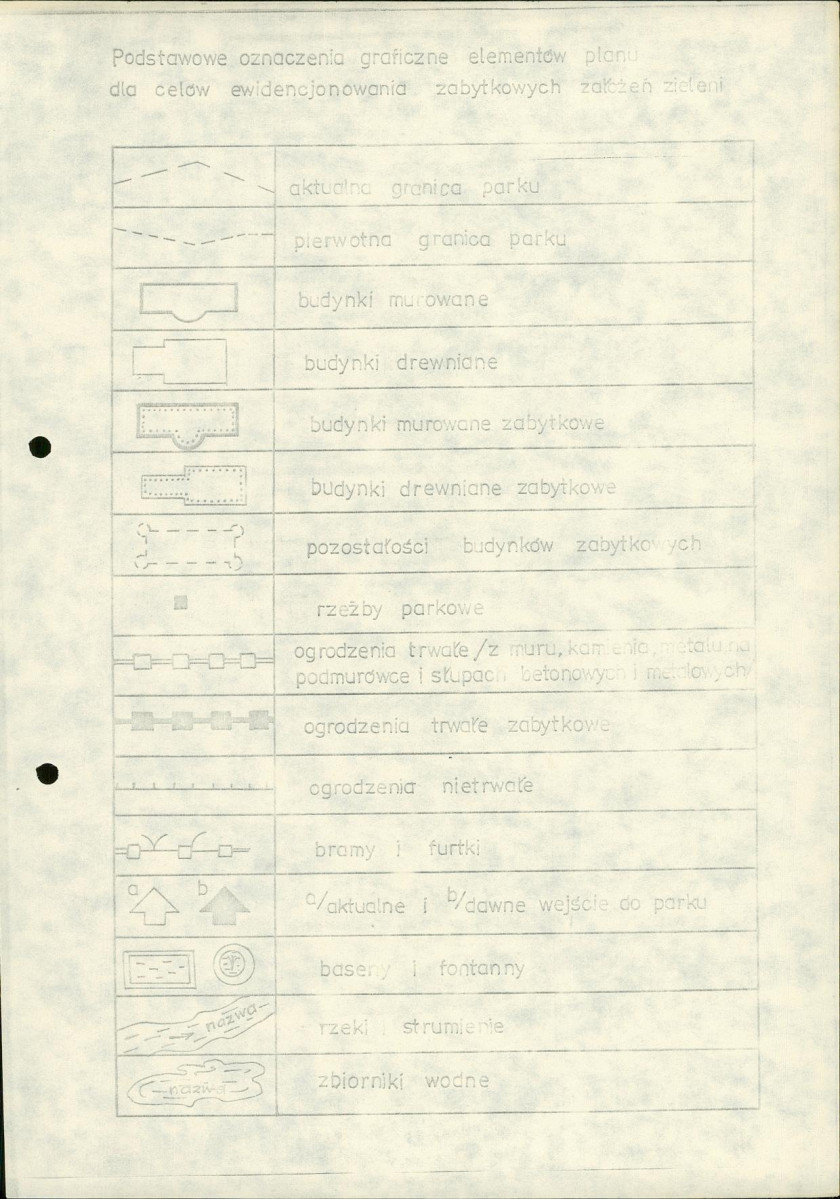 Podstawowe oznaczenia graficzne elementów planu
dla celów ewidencjonowania zabytkowych założeń zieleni
aktualna granica parku
pierwotna granica parku
budynki murowane
budynki drewniane
budynki murowane zabytkowe
budynki drewniane zabytkowe
pozostałości budynków zabytkowych
rzeźby parkowe
ogrodzenia trwałe /z muru, kamienia, metalu na
podmurówce i słupach betonowych i metalowych/
ogrodzenia trwałe zabytkowe
ogrodzenia nietrwałe
bramy i furtki
a b
a/aktualne i b/dawne wejście do parku
baseny i fontanny
nazwa
rzeki strumienie
nazwa
zbiorniki wodne